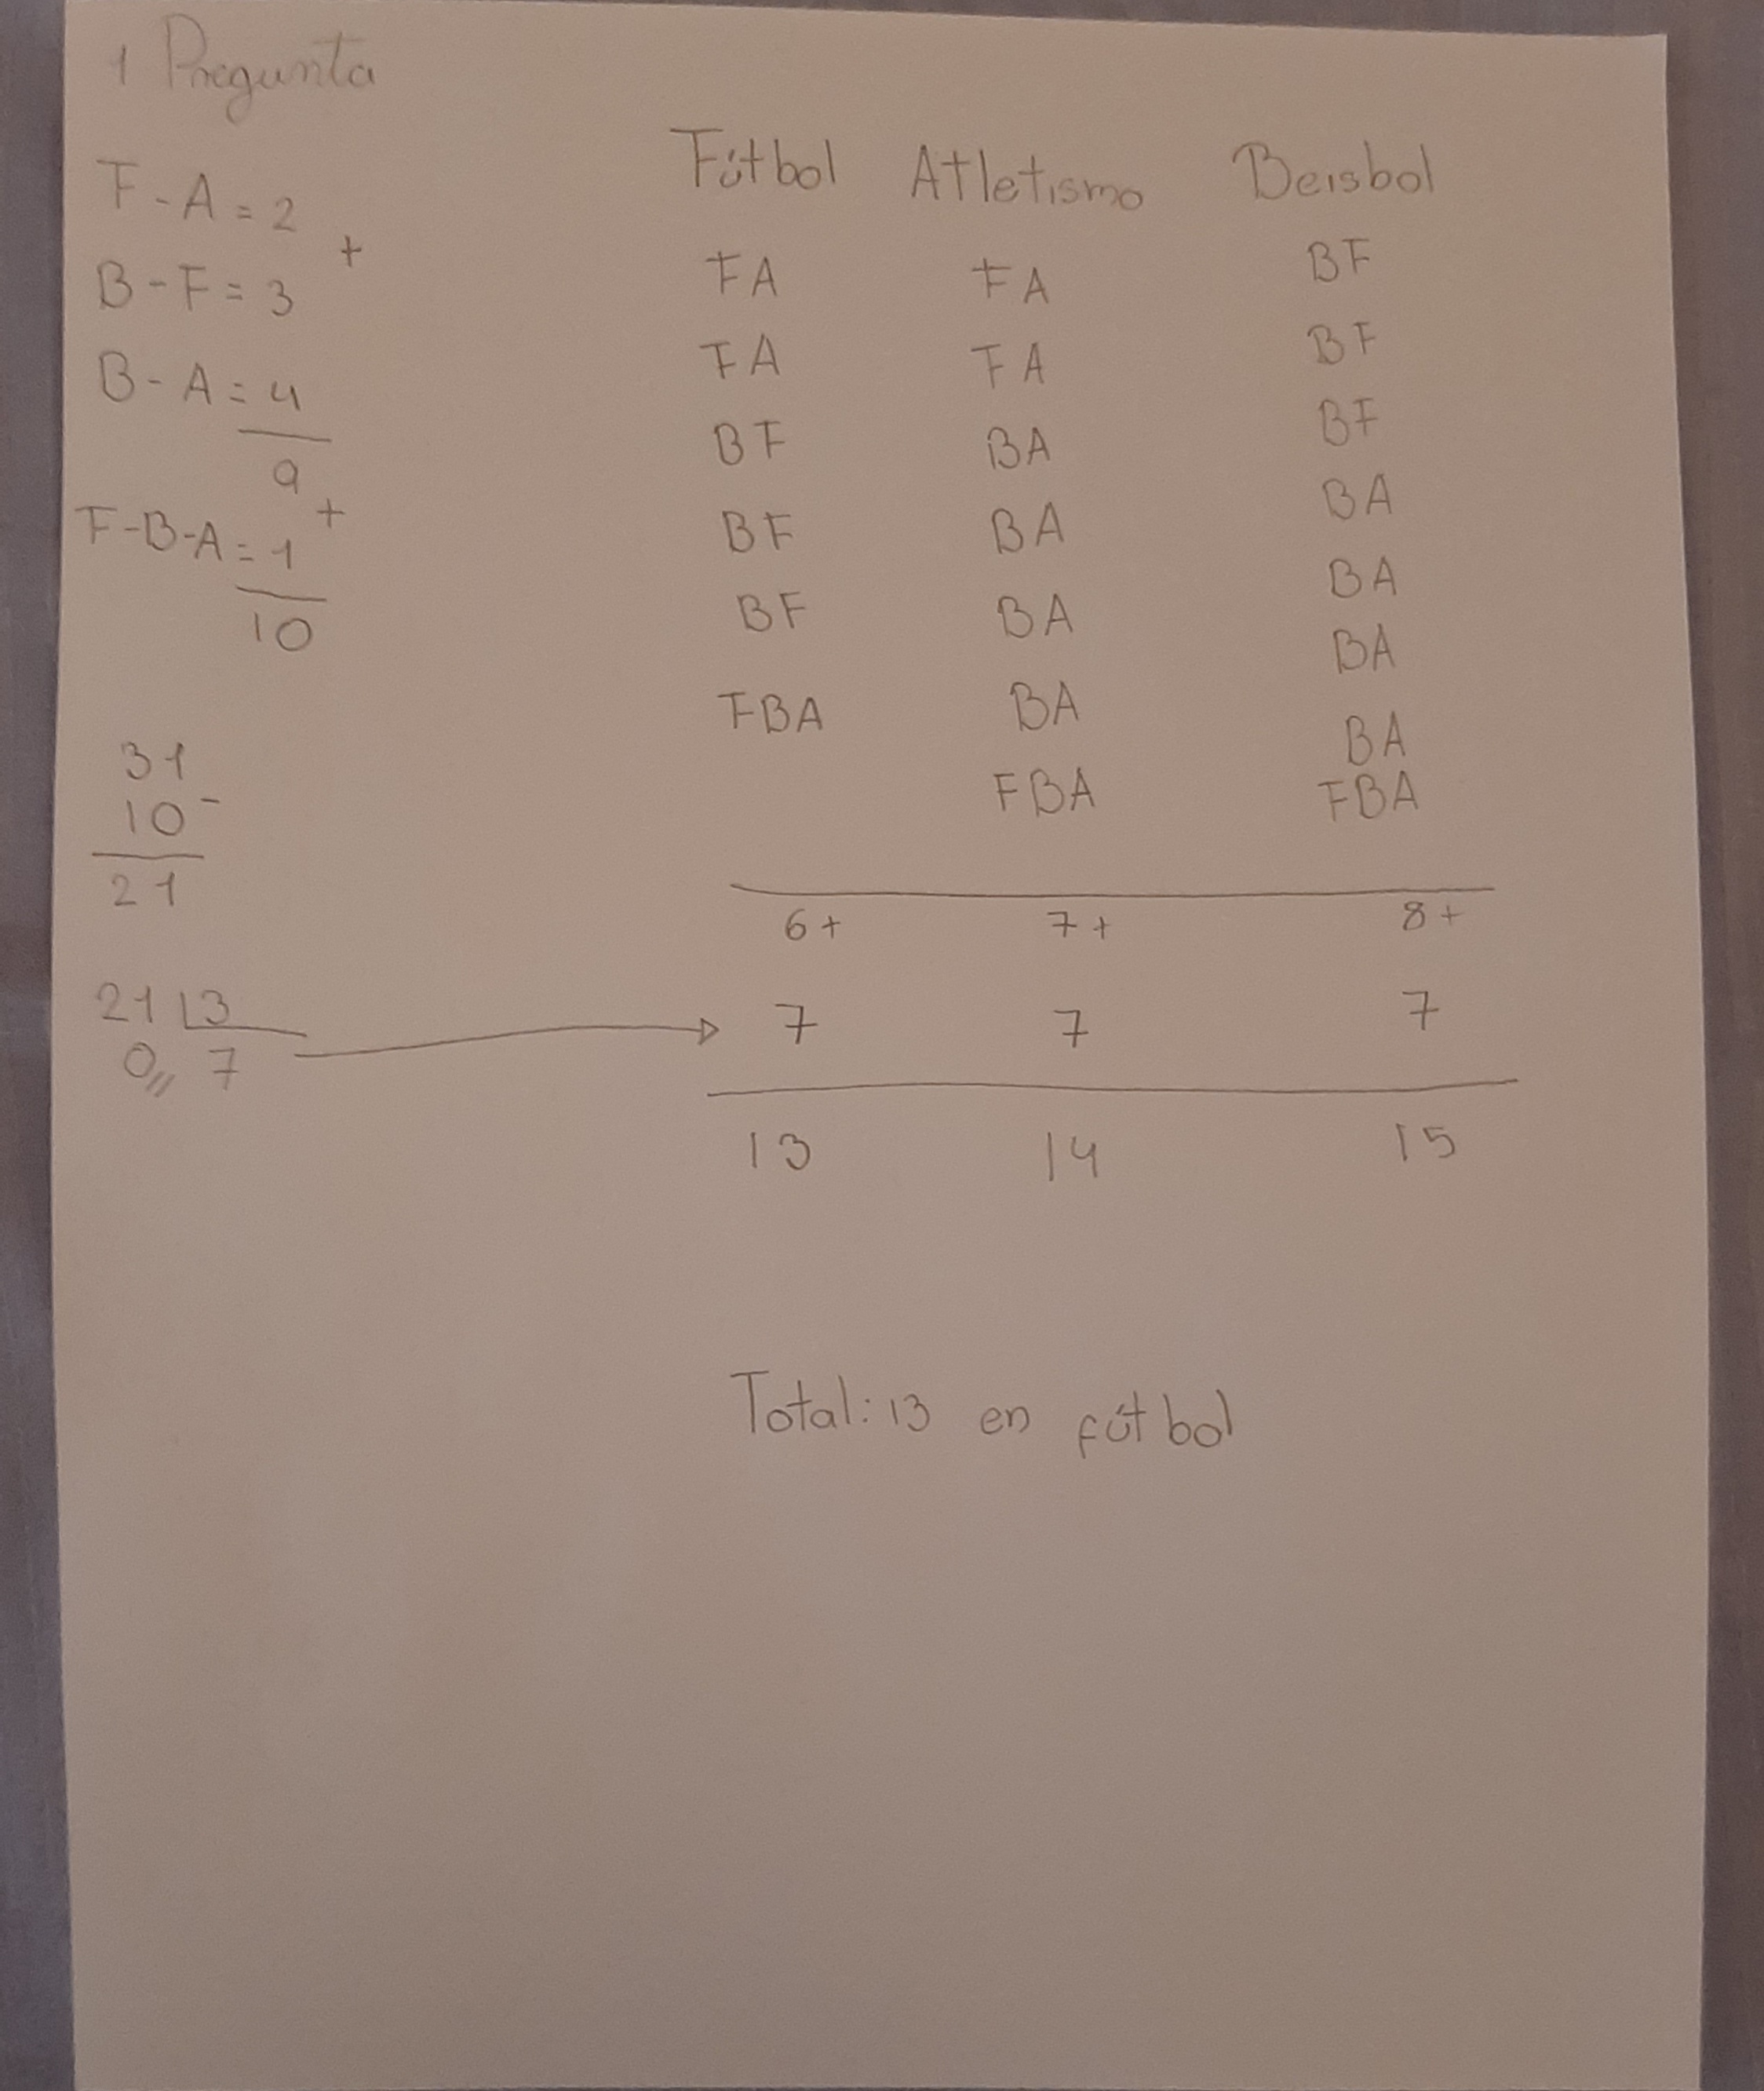 1 Pregunta
F-A=2
+
B-F=3
B-A=4
9
+
F-B-A=1
10
31
10-
21
21 3
0,, 7
Fútbol Atletismo Beisbol
FA FA BF
FA FA BF
BF BA BF
BF BA BA
BF BA BA
FBA BA BA
FBA BA
FBA
6+ 7+ 8+
7 7 7
13 14 15
Total: 13 en fútbol